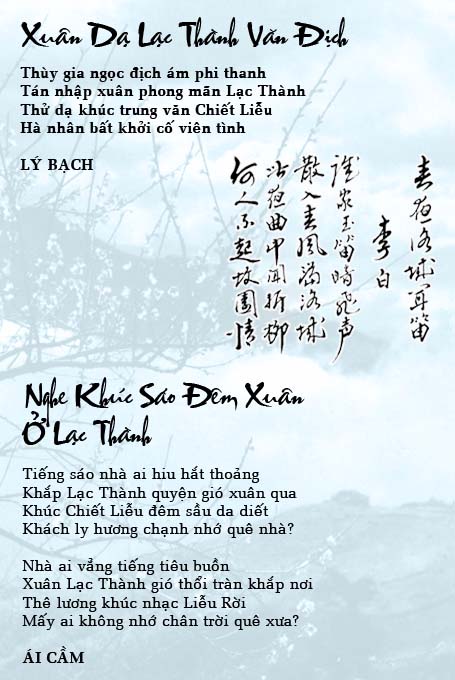 Xuân Dạ Lạc Thành Văn Địch
Thùy gia ngọc địch ám phi thanh
Tán nhập xuân phong mãn Lạc Thành
Thử dạ khúc trung văn Chiết Liễu
Hà nhân bất khởi cố viên tình
LÝ BẠCH
春夜洛城闻笛
李白
谁家玉笛暗飞声
散入春风满洛城
此夜曲中闻折柳
何人不起故园情
Nghe Khúc Sáo Đêm Xuân
Ở Lạc Thành
Tiếng sáo nhà ai hiu hắt thoảng
Khắp Lạc Thành quyện gió xuân qua
Khúc Chiết Liễu đêm sầu da diết
Khách ly hương chạnh nhớ quê nhà?
Nhà ai vẳng tiếng tiêu buồn
Xuân Lạc Thành gió thổi tràn khắp nơi
Thê lương khúc nhạc Liễu Rời
Mấy ai không nhớ chân trời quê xưa?
ÁI CẦM